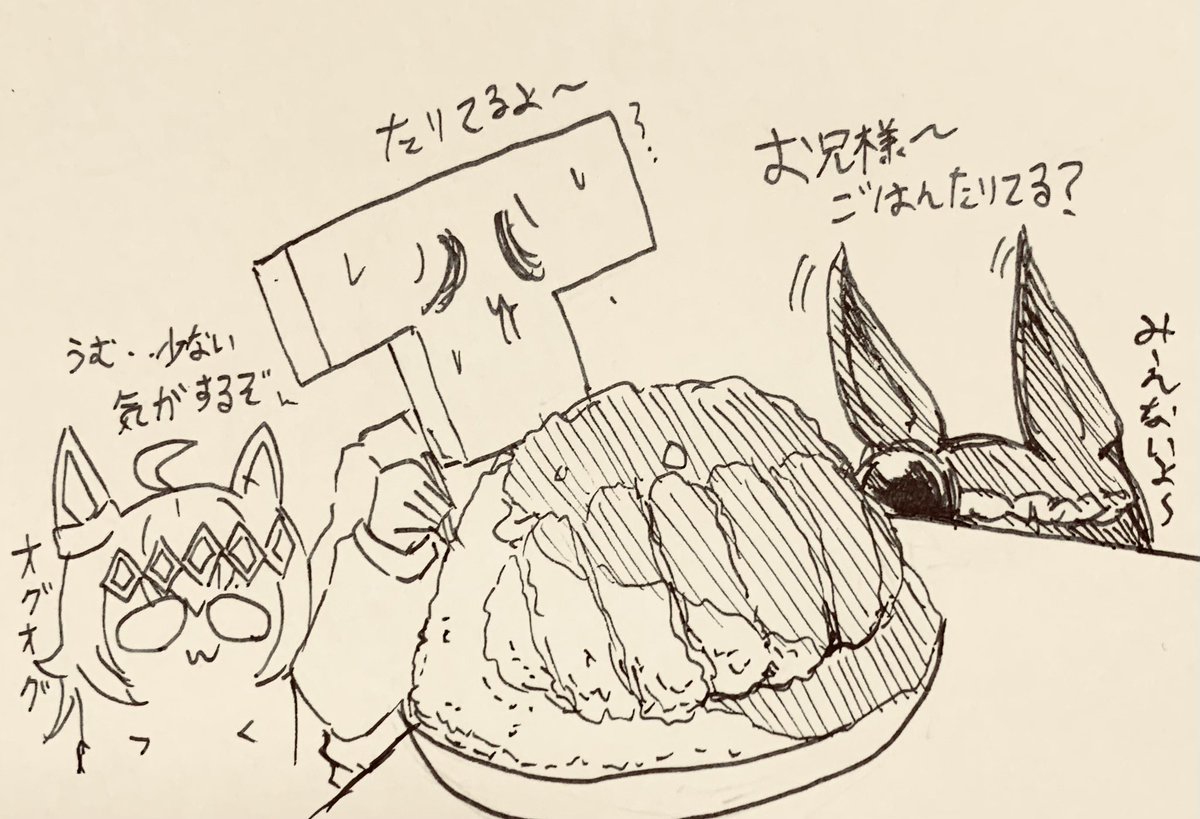 お兄様〜
ごはんたりてる?
みえないよ〜
たりてるよ〜
うむ・・少ない
気がするぞ
オグオグ